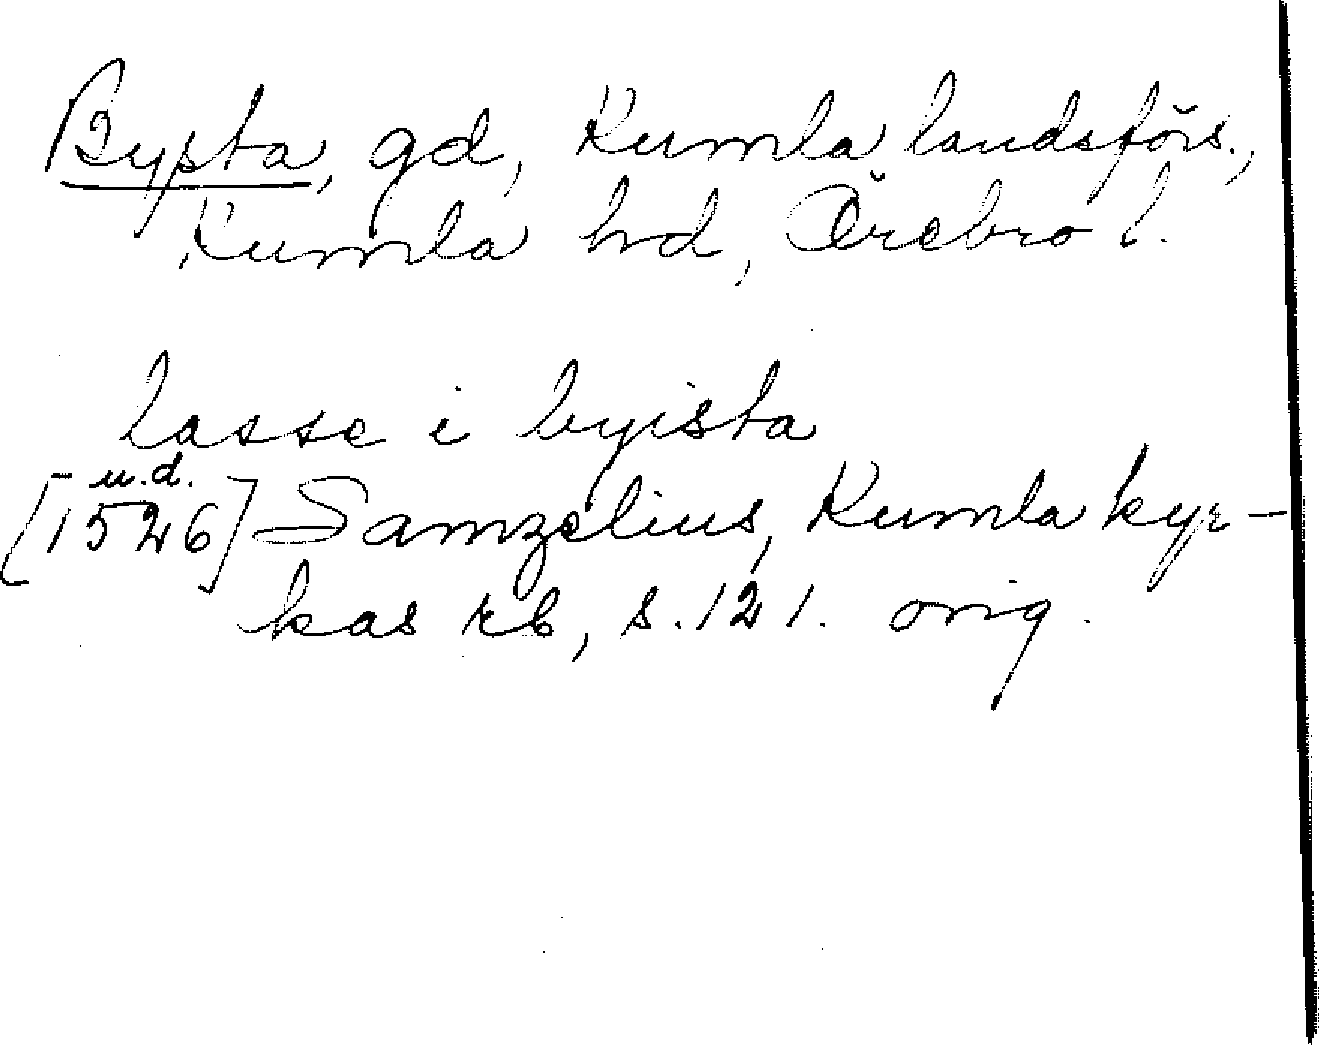 Bysta, gd, Kumla landsförs.,
Kumla hd, Örebro l.
lasse i byista
u.d.
[1526] Samzelius, Kumla kyr-
kas rb, s. 121. orig.